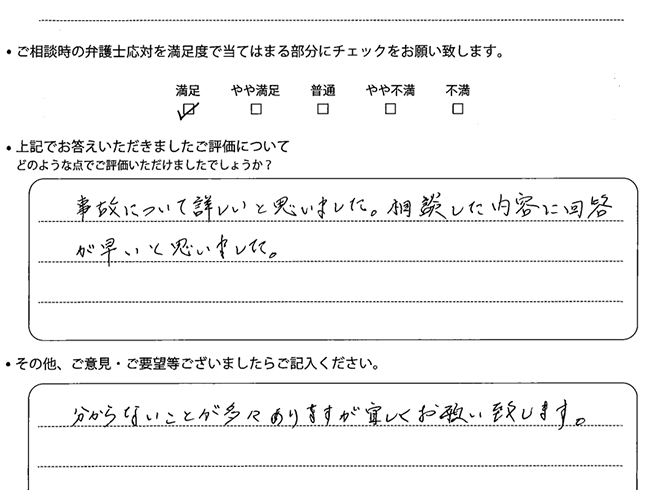 ・ご相談時の弁護士応対を満足度で当てはまる部分にチェックをお願い致します。
満足 やや満足 普通 やや不満 不満
☑ □ □ □ □
・上記でお答えいただきましたご評価について
どのような点でご評価いただけましたでしょうか？
事故について詳しいと思いました。相談した内容に回答
が早いと思いました。
・その他、ご意見・ご要望等ございましたらご記入ください。
分からないことが多々ありますが宜しくお願い致します。